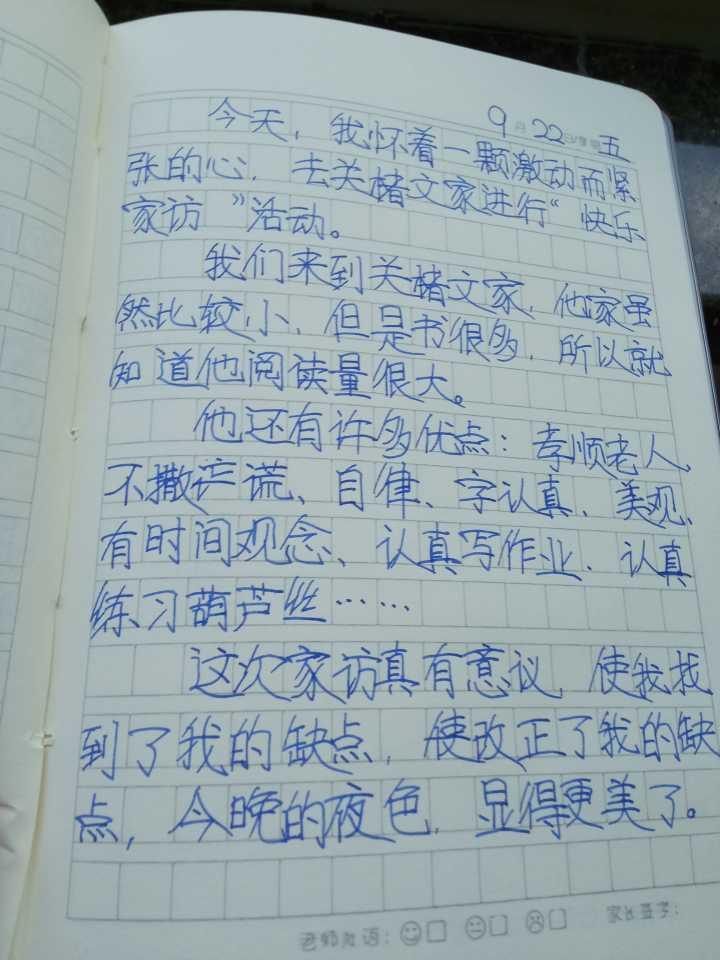 9月22日星期五
今天，我怀着一颗激动而紧
张的心，去关楮文家进行“快乐
家访”活动。
我们来到关楮文家，他家虽
然比较小，但是书很多，所以就
知道他阅读量很大。
他还有许多优点：孝顺老人、
不撒谎、自律、字认真、美观、
有时间观念、认真写作业、认真
练习葫芦丝……
这次家访真有意议，使我找
到了我的缺点，使改正了我的缺
点，今晚的夜色，显得更美了。
老师批语： 家长签字：